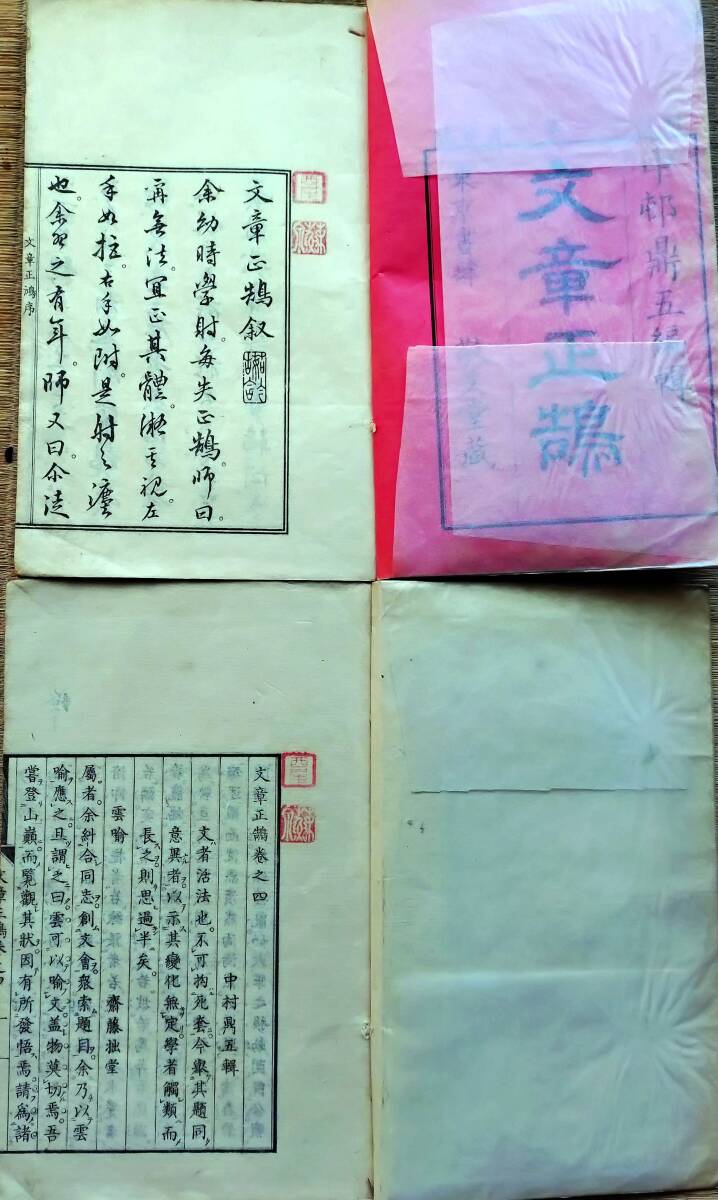 中邨鼎五編輯
文章正鵠
東京書肆
文章正鵠叙
余幼時學射每失正鵠師曰
再無法冝正其體凝其視左
手如拄右手如附是射之瀍
也余習之有年師又曰尒徒
文章正鵠序
文章正鵠卷之四
中村鼎五輯
文者活法也不可拘死套今擧其題同
意異者以示其變化無定學者觸類而
長之則思過半矣
雲喩
齋藤拙堂
屬者余糾合同志創文會衆索題目余乃以雲
喻應之且謂之曰雲可以喻文盖物莫切焉吾
嘗登山巔而覽觀其狀因有所發悟焉請爲諸
文章正鵠卷之四